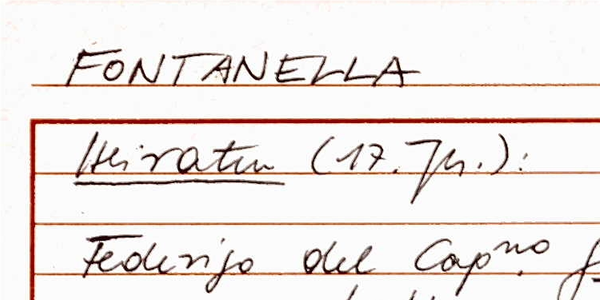 FONTANELLA
Heiraten (17. Jh.):
Federigo del Cap.no